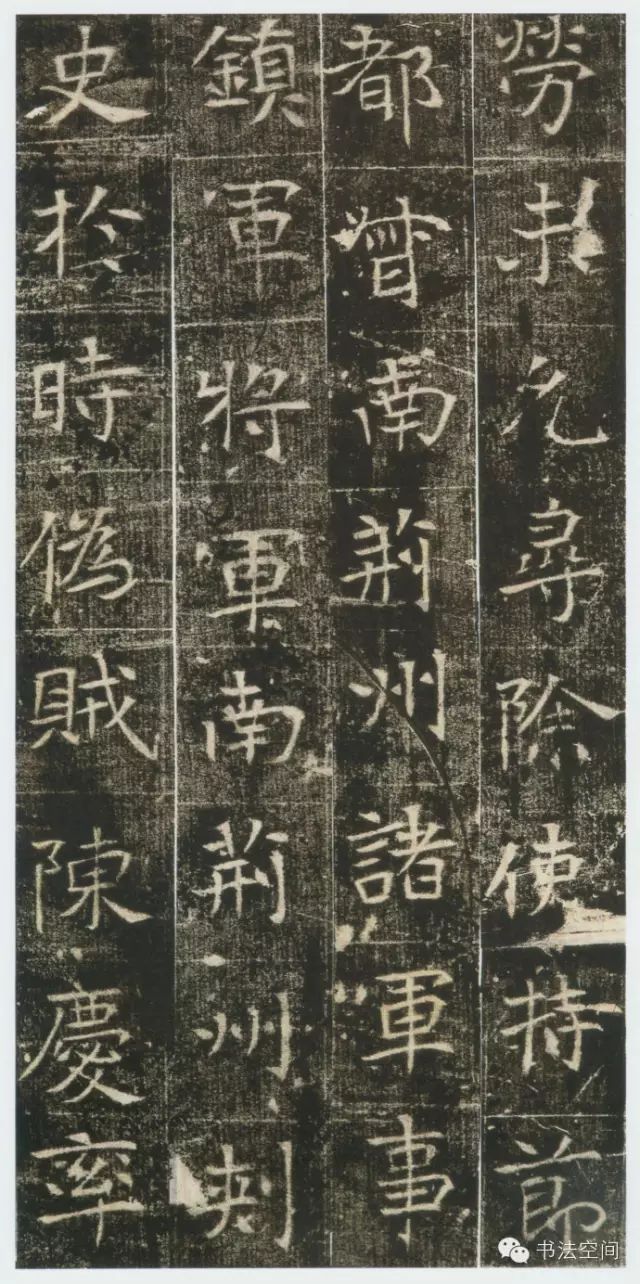 勞未允尋除使持節
都督南荊州諸軍事
鎮軍將軍南荊州刾
史於時偽賊陳慶率
书法空间